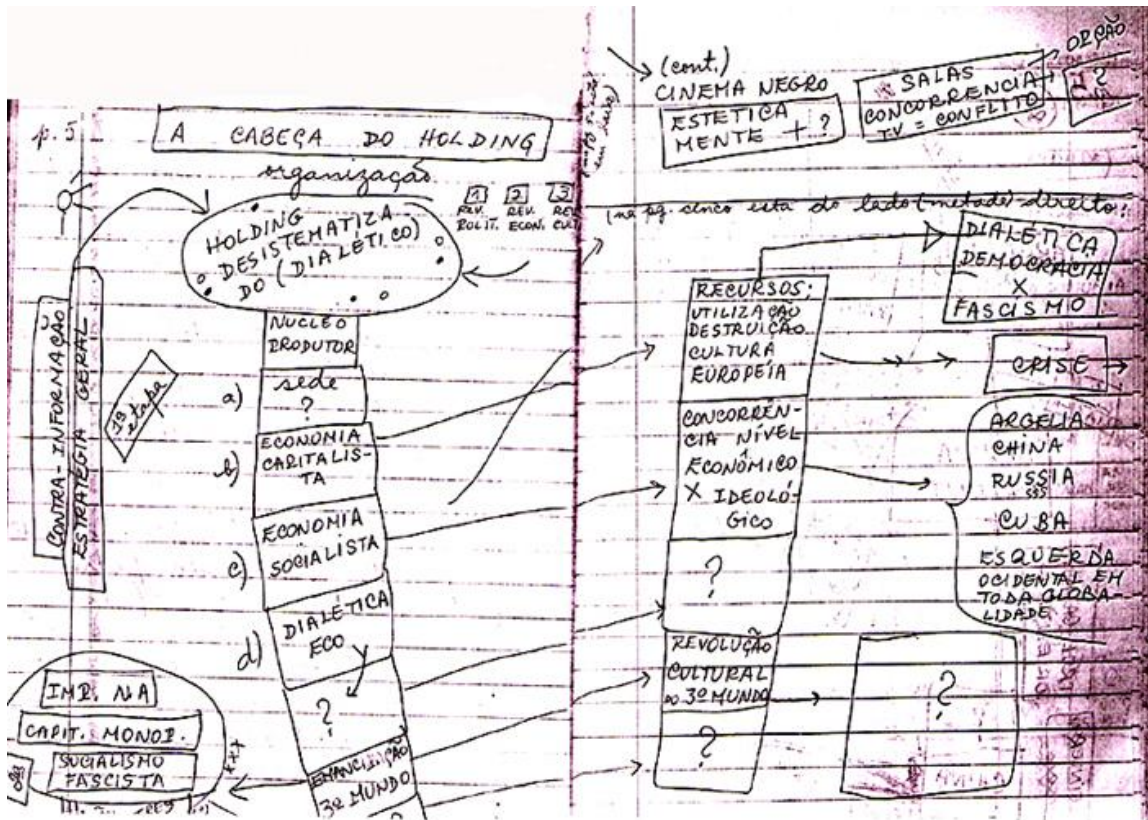 p. 5
A CABEÇA DO HOLDING
organização
HOLDING
DESISTEMATIZA
DO (DIALÉTICO)
1 2 3
REV. POLIT.
REV. ECON.
REV CULT
CONTRA-INFORMAÇÃO
ESTRATÉGIA GERAL
etapa
NUCLEO
PRODUTOR
a) sede
?
b) ECONOMIA
CAPITALIS-
TA
c) ECONOMIA
SOCIALISTA
d) DIALÉTICA
ECO
?
EMANCIPAÇÃO
3º MUNDO
?
IMP. NA
CAPIT. MONOP.
SOCIALISMO
FASCISTA
xxx
(cont.)
CINEMA NEGRO
ESTETICA
MENTE + ?
SALAS
CONCORRENCIA
TV = CONFLITO
OPÇÃO
?
(na pg. cinco esta do lado (metade) direito:
RECURSOS:
UTILIZAÇÃO
DESTRUIÇÃO
CULTURA
EUROPEIA
CONCORRÊN-
CIA NÍVEL
ECONÔMICO
X IDEOLÓ-
GICO
?
REVOLUÇÃO
CULTURAL
DO 3º MUNDO
?
DIALETICA
DEMOCRACIA
X
FASCISMO
CRISE
ARGELIA
CHINA
RUSSIA
CUBA
ESQUERDA
OCIDENTAL EM
TODA GLOBA-
LIDADE
?